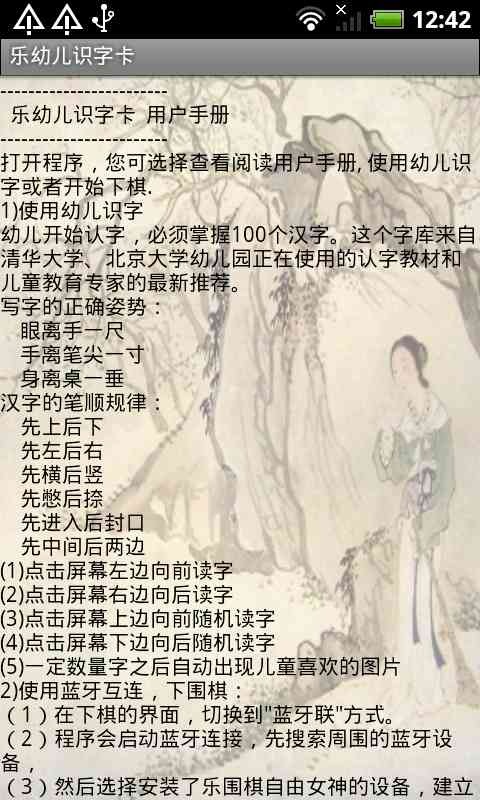 12:42
乐幼儿识字卡
------------------------
乐幼儿识字卡 用户手册
------------------------
打开程序，您可选择查看阅读用户手册, 使用幼儿识
字或者开始下棋.
1)使用幼儿识字
幼儿开始认字，必须掌握100个汉字。这个字库来自
清华大学、北京大学幼儿园正在使用的认字教材和
儿童教育专家的最新推荐。
写字的正确姿势：
眼离手一尺
手离笔尖一寸
身离桌一垂
汉字的笔顺规律：
先上后下
先左后右
先横后竖
先憋后捺
先进入后封口
先中间后两边
(1)点击屏幕左边向前读字
(2)点击屏幕右边向后读字
(3)点击屏幕上边向前随机读字
(4)点击屏幕下边向后随机读字
(5)一定数量字之后自动出现儿童喜欢的图片
2)使用蓝牙互连，下围棋：
（1）在下棋的界面，切换到"蓝牙联"方式。
（2）程序会启动蓝牙连接，先搜索周围的蓝牙设
备，
（3）然后选择安装了乐围棋自由女神的设备，建立